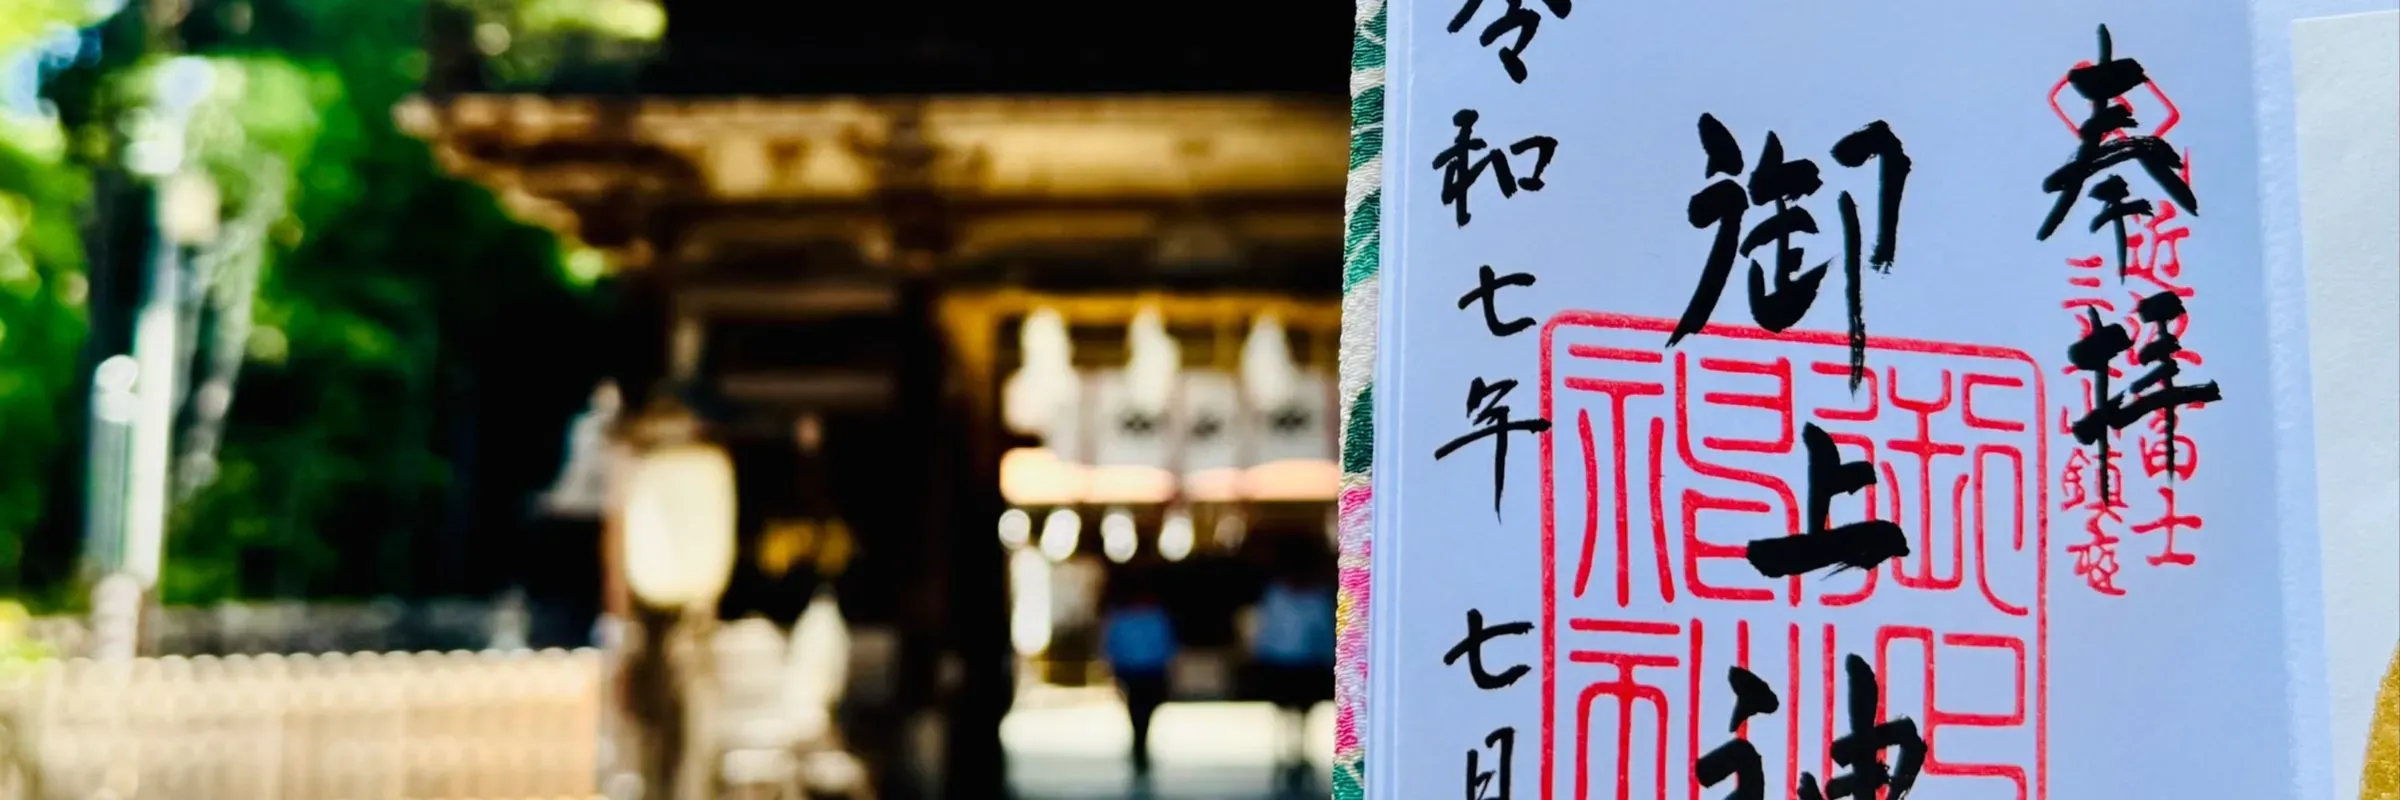 奉拝
近江富士
三上山鎮座
御上神
令和七年 七月